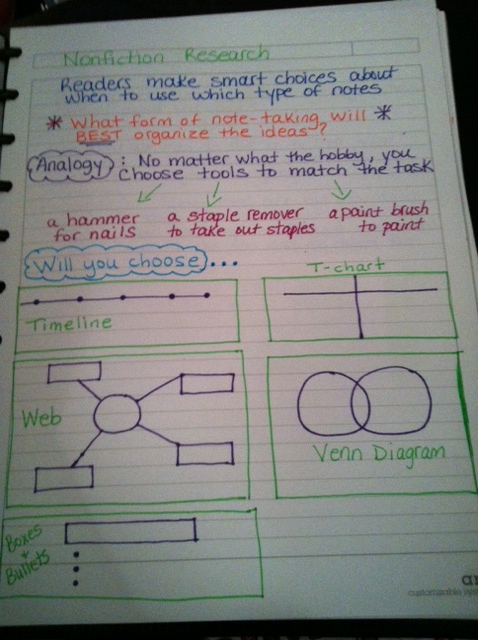 Nonfiction Research
Readers make smart choices about
when to use which type of notes
* What form of note-taking will *
BEST organize the ideas?
Analogy: No matter what the hobby, you
choose tools to match the task
a hammer
for nails
a staple remover
to take out staples
a paint brush
to paint
Will you choose...
Timeline
T-chart
Web
Venn Diagram
Boxes
+
Bullets